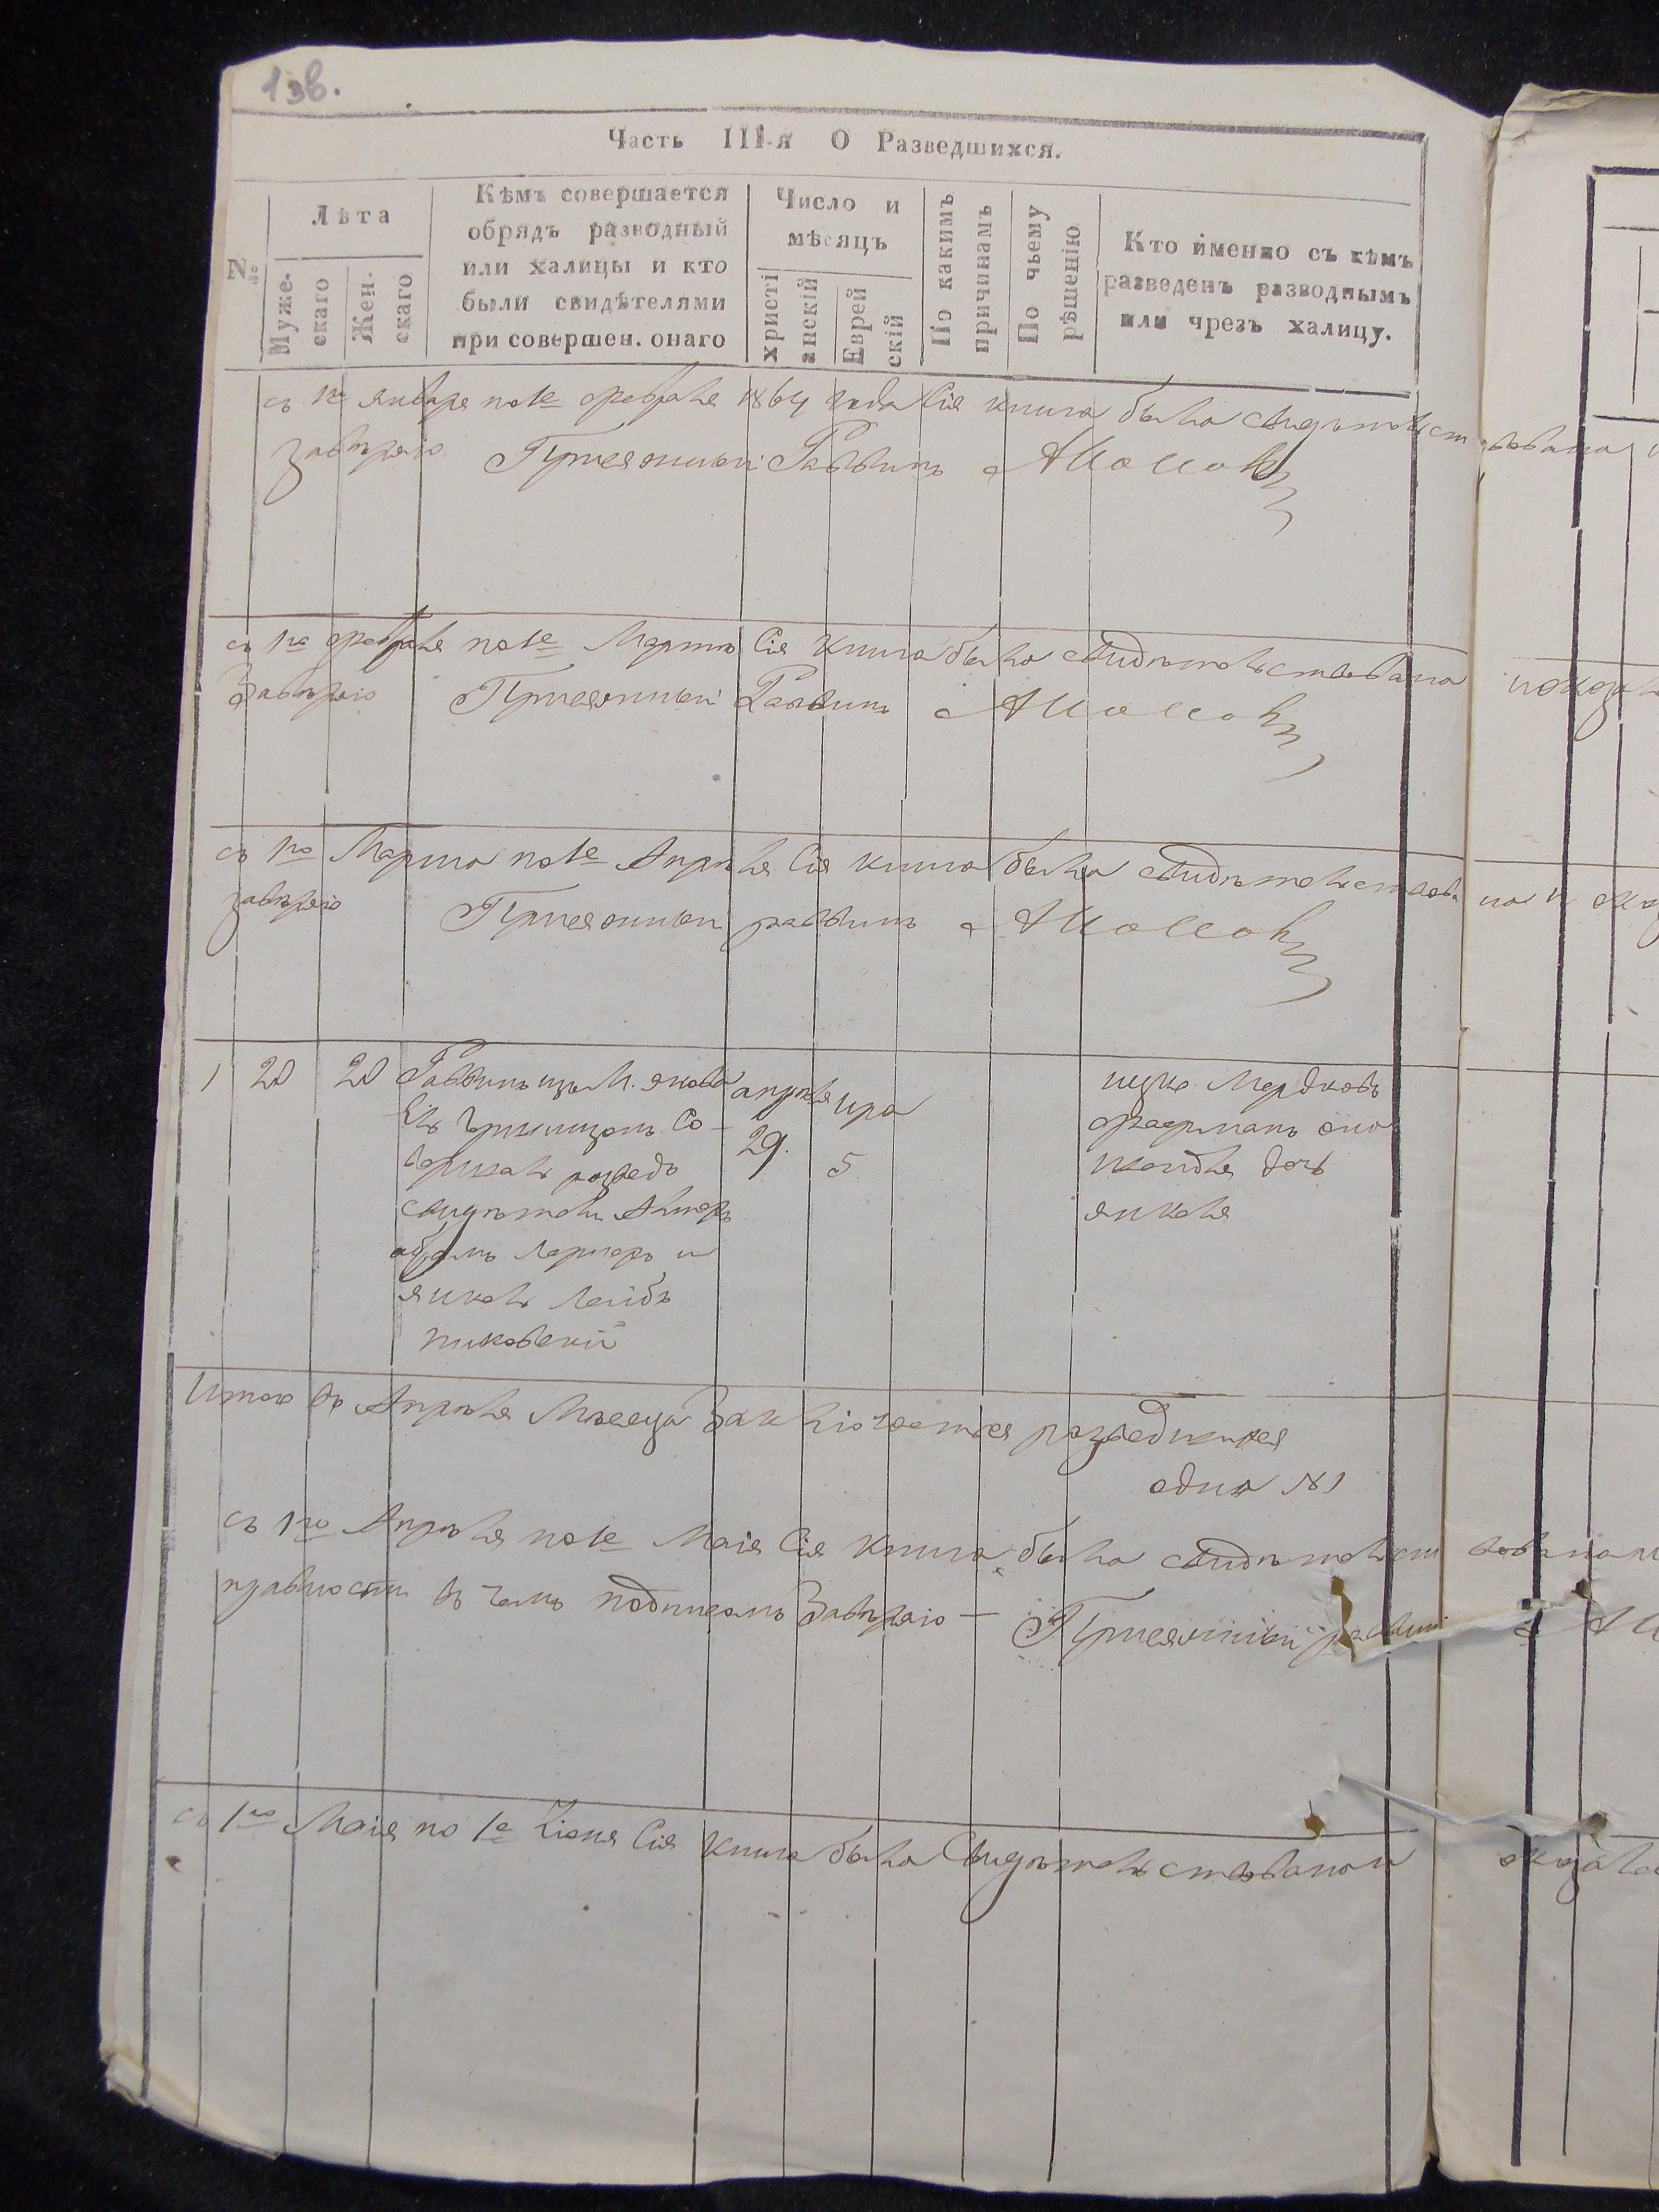 13в.
Часть III-я О Разведшихся.
№
Лѣта
Муже-
скаго
Жен.
скаго
Кѣмъ совершается
обрядъ разводный
или халицы и кто
были свидѣтелями
при совершен. онаго
Число и
мѣсяцъ
христі
анскій
Еврей
скій
По какимъ
причинамъ
По чьему
рѣшенію
Кто именно съ кѣмъ
разведенъ разводнымъ
или чрезъ халицу.
съ 1го января по 1е февраля 1864 года Сія книга была свидѣтельст вована
завѣряю Присяжный Раввинъ
съ 1го февраля по 1е Марта Сія книга была свидѣтельствована
Завѣряю Присяжный Раввинъ
съ 1го Марта по 1е Апрѣля Сія книга была свидѣтельствова на и
завѣряю Присяжный раввинъ
1 20 20 Раввинъ
апрѣля
29.
ира
5
Со-
вершалъ разводъ
свидѣтели
абрамъ Лернеръ и
янкель Лейбъ
ицко Мордковъ
дочь
янкеля
Итого въ Апрѣля Мѣсяца Заключается разведшихся
одна №1
съ 1го Апрѣля по 1е Маія Сія книга была свидѣтельст вована и
правности въ чемъ подписомъ Завѣряю — Присяжный раввинъ
съ 1го Маія по 1е Іюня Сія книга была Свидѣтельствована и